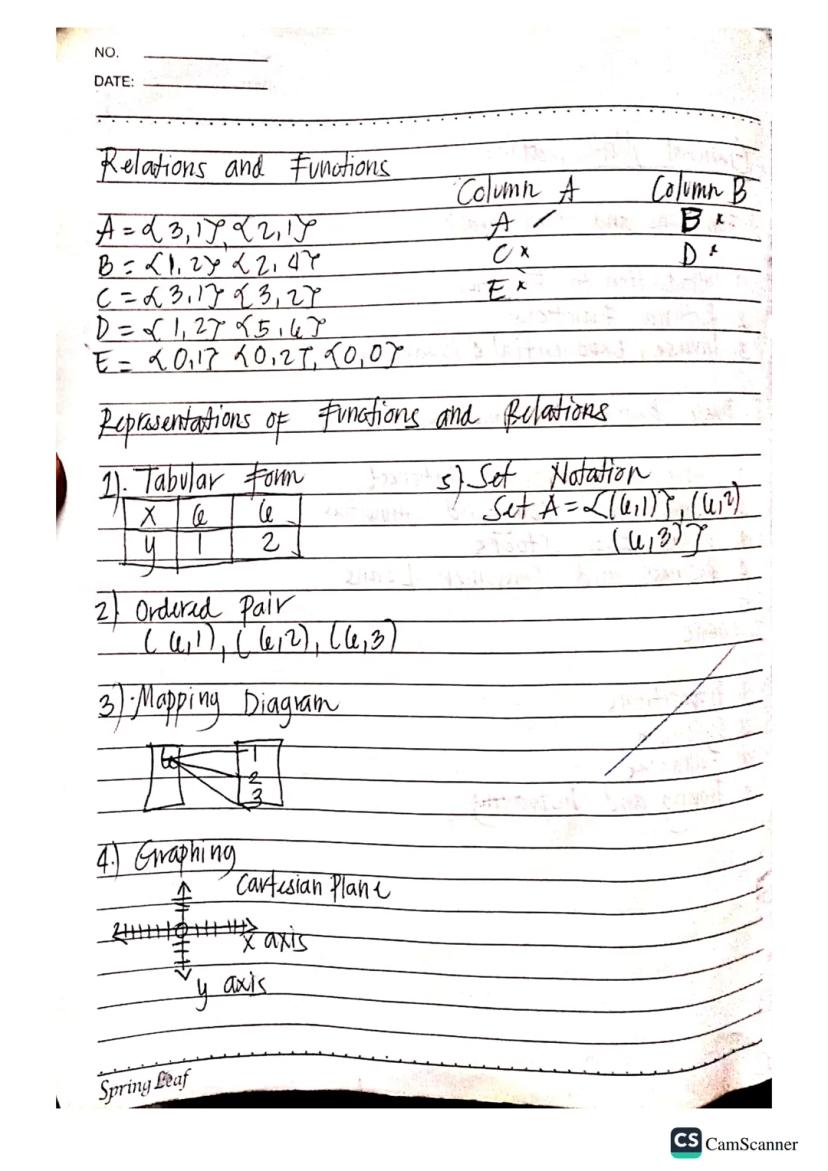 NO.
DATE:
Relations and Functions
Column A Column B
A = {3,1}, {2,1} A / B x
B = {1,2} {2,4} C x D x
C = {3,1} {3,2} E x
D = {1,2} {5,6}
E = {0,1} {0,2}, {0,0}
Representations of Functions and Relations
1). Tabular Form
x 6 6
y 1 2
5) Set Notation
Set A = {(6,1)}, (6,2)
(6,3)}
2) Ordered Pair
(6,1), (6,2), (6,3)
3) Mapping Diagram
6 1
2
3
4.) Graphing
Cartesian Plane
x axis
y axis
Spring Leaf
CS CamScanner